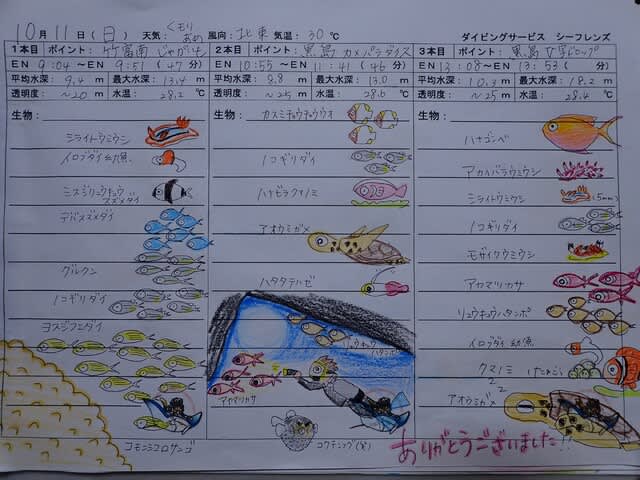 10月11日(日) 天気：くモリ あめ 風向：北東 気温：30℃ ダイビングサービス シーフレンズ
1本目 ポイント：竹富南 じゃがいも
EN 9:04～EN 9:51 (47分)
平均水深：9.4m 最大水深：13.4m
透明度：～20m 水温：28.2℃
生物：
ミライトウミウシ
イロブダイ幼魚
ミスジリュウキュウスズメダイ
デバスズメダイ
グルクン
ノコギリダイ
ヨスジフエダイ
コモンシコロサンゴ
2本目 ポイント：黒島 カメパラダイス
EN 10:55～EN 11:41 (46分)
平均水深：8.8m 最大水深：13.0m
透明度：～25m 水温：28.6℃
生物：
カスミチョウチョウウオ
ノコギリダイ
ハナビラクマノミ
アオウミガメ
ハタタテハゼ
リュウキュウハタンポ
アヤマリカサ
コクテンフグ(黒)
3本目 ポイント：黒島 V字ドロップ
EN 13:08～EN 13:53 (分)
平均水深：10.3m 最大水深：18.2m
透明度：～25m 水温：28.4℃
生物：
ハナゴンベ
アカイバラウミウシ
ミライトウミウシ (5mm)
ノコギリダイ
モザイクウミウシ
アヤマリカサ
リュウキュウハタンポ
イロブダイ幼魚
クマノミ
アオウミガメ
ありがとうございました!!